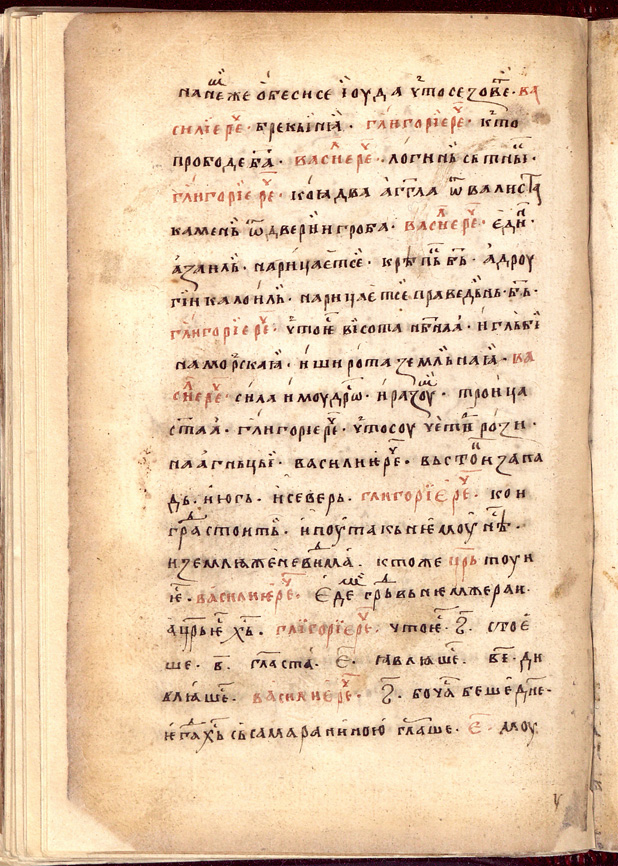 нанѥⷤже ѻбесисе їоуда что се зовеⷮ· ва
силїе реⷱ҇· брекынꙗ· глигорїе реⷱ҇· кто
прободе б҃а· васиⷧ҇е реⷱ҇· логинь сьтнⷩкь·
глигорїе реⷱ҇· кои два аг҃гла ѿвалиста
камень ѿ двери гроба· васиⷧ҇ѥ реⷱ҇· едиⷩ҇·
азаиль· нарицаѥтсе· крѣпⷦ҇ь бь· а дроу
ги калоиль· нарицаѥтсе праведьнь· бь·
глигорїе реⷱ҇· что ѥⷭ҇ висота нб҃наа· и гльби
на морⷭ҇каꙗ· и широта земльнаꙗ· ва
сиⷧ҇ѥ реⷱ҇· сила и моудрⷭ҇о· и разоуⷨ· троица
ст҃аа· глигорїе реⷱ҇· что соу четиⷬ рози·
на агньцы· василиѥ реⷱ҇· вьстоⷦ и запа
дь· и югь· и северь· глигорїе реⷱ҇· кои
граⷣ стоить· и поута кь нѥмоу нⷭ҇ѣ·
и землꙗ же невиⷣма· кто же цр҃ь тоу и
ѥⷭ҇· василиѥ реⷱ҇· еде граⷣ вь нѥмже раи·
а цр҃ь ѥⷭ҇ х҃ь· глїгорїе реⷱ҇· что ѥⷭ҇· ѕ҃· стоѥ
ше· в҃· гласта· е҃· ꙗвлꙗшеⷭ҇· в҃е· ди
влꙗшеⷭ҇· василиѥ реⷱ҇· ѕ҃· бо чⷭ҇а беше дн҃е·
ѥгⷣа х҃ь сь самаранинною гл҃аше· е҃· моу